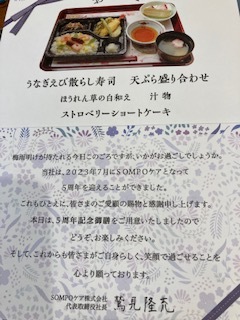 うなぎえび散らし寿司　天ぷら盛り合わせ
ほうれん草の白和え　汁物
ストロベリーショートケーキ
梅雨明けが待たれる今日このごろですが、いかがお過ごしでしょうか。
当社は、2023年7月にSOMPOケアとなって
5周年を迎えることができました。
これもひとえに、皆さまのご愛顧の賜物と感謝申し上げます。
本日は、5周年記念御膳をご用意いたしましたので
どうぞ、お楽しみください。
そして、これからも皆さまがご自身らしく、笑顔で過ごせることを
心より願っております。
SOMPOケア株式会社
代表取締役社長　鷲見隆充